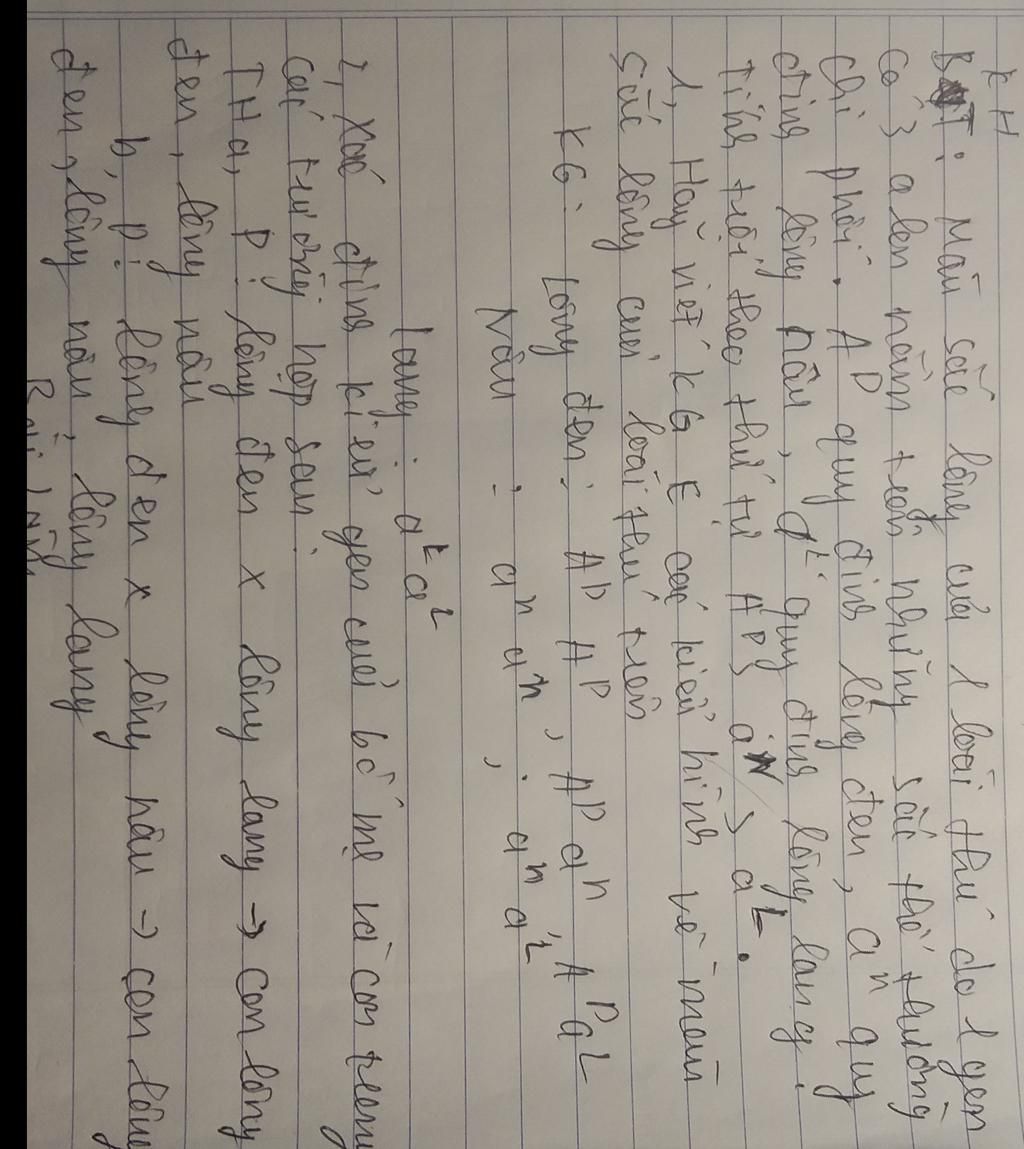 KH
BT: Màu sắc lông của 1 loài thú do 1 gen
có 3 alen nằm trên những sắc thể thường
chi phối. A^D quy định lông đen, a^n quy
định lông nâu, a^L quy định lông lang.
Tính trội theo thứ tự A^D > a^N > a^L.
1, Hãy viết KG E các kiểu hình về màu
sắc lông của loài thú trên
KG: lông đen: A^D A^D, A^D a^n, A^D a^L
Nâu: a^n a^n, a^n a^L
lang: a^L a^L
2, Xác định kiểu gen của bố mẹ và con trong
các trường hợp sau:
TH a, P: lông đen x lông lang → con lông
đen, lông nâu
b, P: lông đen x lông nâu → con lông
đen, lông nâu, lông lang